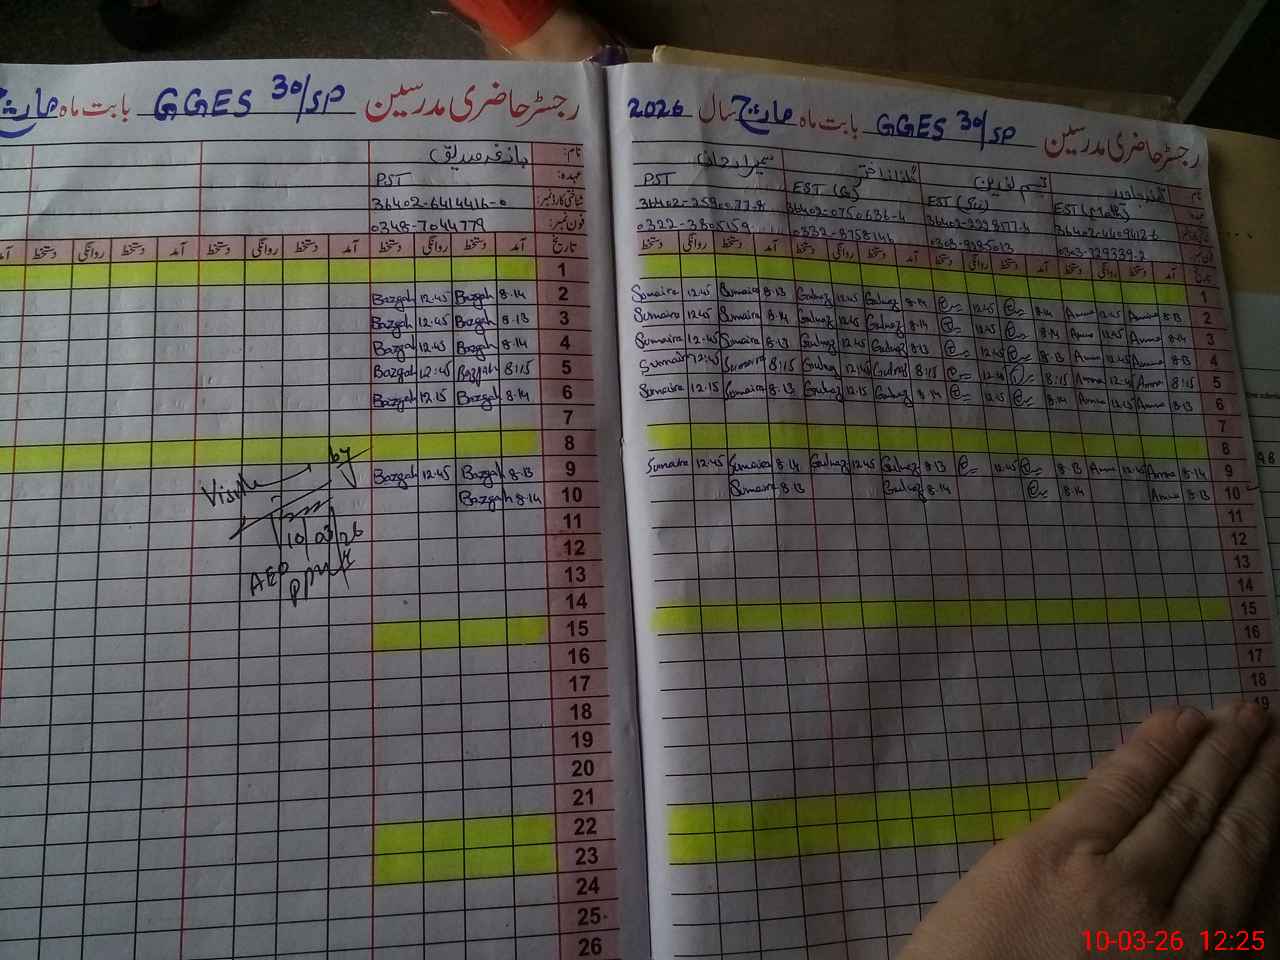 رجسٹر حاضری مدرسین GGES 30/SP بابت ماہ مارچ
نام:
عہدہ: PST
شناختی کارڈ نمبر: 36402-6414416-0
فون نمبر: 0348-7044779
تاریخ آمد دستخط روانگی دستخط آمد دستخط روانگی دستخط آمد دستخط روانگی دستخط آمد
1
2 8.14 Bazgah 12.45 Bazgah
3 8.13 Bazgah 12.45 Bazgah
4 8.14 Bazgah 12.45 Bazgah
5 8:15 Bazgah 12:45 Bazgah
6 8.14 Bazgah 12.15 Bazgah
7
8
9 8.13 Bazgah 12.45 Bazgah
10 8.14 Bazgah
11
12
13
14
15
16
17
18
19
20
21
22
23
24
25
26
by
10/03/26
AEO
رجسٹر حاضری مدرسین GGES 30/SP بابت ماہ مارچ سال 2026
نام
EST (Math) EST (Sci) EST (G) PST
0322-3805159
آمد دستخط روانگی دستخط آمد دستخط روانگی دستخط آمد دستخط روانگی دستخط آمد دستخط روانگی دستخط
1
2 8.13 Amna 12.45 Amna 8.14 12.45 8.14 Gulnaz 12.45 Gulnaz 8.13 Sumaira 12.45 Sumaira
3 8.14 Amna 12.45 Amna 8.14 12.45 8.14 Gulnaz 12.45 Gulnaz 8.14 Sumaira 12.45 Sumaira
4 8.13 Amna 12.45 Amna 8.13 12.45 8.13 Gulnaz 12.45 Gulnaz 8.13 Sumaira 12.45 Sumaira
5 8:15 Amna 12.45 Amna 8:15 8:15 Gulnaz 12.45 Gulnaz 8:15 Sumaira 12:45 Sumaira
6 8.13 Amna 12.15 Amna 8.14 12.15 8.14 Gulnaz 12.15 Gulnaz 8.13 Sumaira 12.15 Sumaira
7
8
9 8.14 Amna 12.45 Amna 8.13 12.45 8.13 Gulnaz 12.45 Gulnaz 8.14 Sumaira 12.45 Sumaira
10 8.13 Amna 8.14 8.14 Gulnaz 8.13 Sumaira
11
12
13
14
15
16
17
18
19
10-03-26 12:25